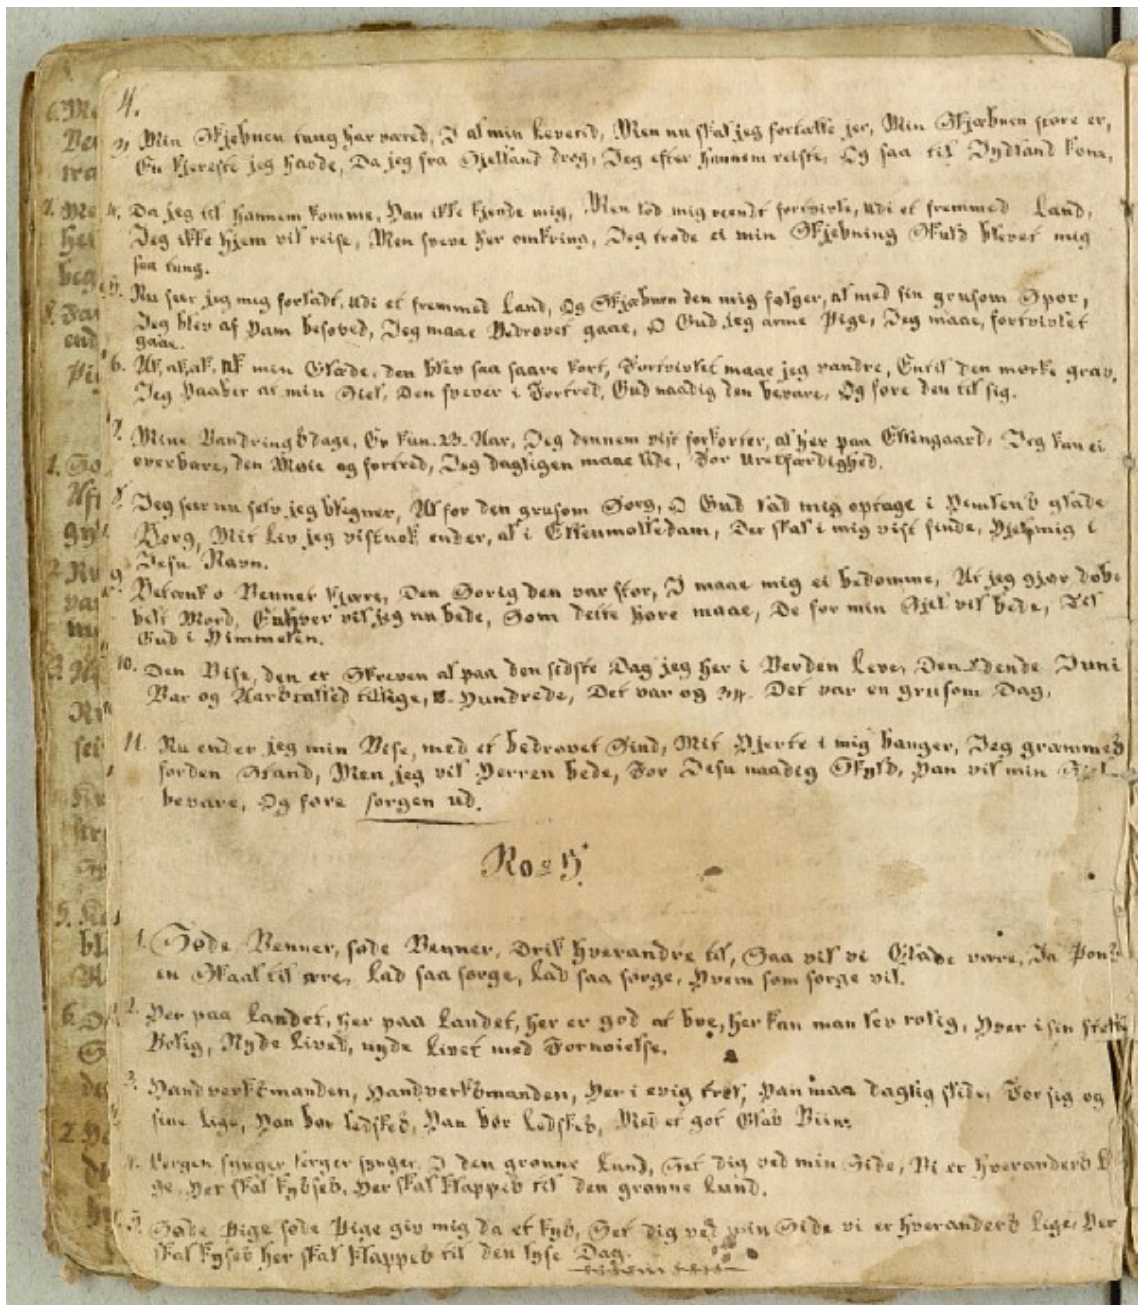 4.
3, Min Skjebnen tung har væred, I al min Levetid, Men nu skal jeg fortælle jer, Min Skjæbnen store er,
En kjereste jeg havde, Da jeg fra Sjelland drog, Jeg efter hannem reiste, Og saa til Jydland kom,
4. Da jeg til hannem komme, Han ikke kjende mig, Men lod mig reendt fortvivle, udi et fremmed Land,
Jeg ikke hjem vil reise, Men sveve her omkring, Jeg trode ei min Skjebning Skuld blevet mig
saa tung.
5. Nu seer jeg mig forladt, udi et fremmed Land, Og Skjæbnen den mig følger, al med sin grusom Spor,
Jeg blev af Ham besoved, Jeg maae Bedrøvet gaae, O Gud jeg arme Pige, Jeg maae, fortvivlet
gaae.
6. Ak, ak, ak, ak min Glæde, den blev saa saare kort, Fortvivlet maae jeg vandre, Entil den mørke grav,
Jeg Haaber at min Siel, Den svever i Fortred, Gud naadig den bevare, Og føre den til sig.
7. Mine Vandringsdage, Er kun. 23. Aar, Jeg dennem vist forkorter, al her paa Ellengaard, Jeg kan ei
overbære, den Møie og fortred, Jeg dagligen maae lide, For uretfærdighed.
8. Jeg seer nu selv jeg blegner, Alt for den grusom Sorg, O Gud lad mig optage i Himlens glade
Borg, Mit Liv jeg vistnok ender, al i Ellenmølledam, Der skal i mig vist finde, Hjelp mig i
Jesu Navn.
9. Betænk o Venner kjære, Den Sorig den var stor, I maae mig ei bedømme, At jeg gjør dob-
belt Mord, Enhver vil jeg nu bede, Som dette høre maae, De for min Sjel vil bede, Til
Gud i Himmelen.
10. Den Vise, den er Skreven al paa den sidste Dag jeg her i Verden Leve, Den dende Juni
Var og Aarstalled tillige, 18. Hundrede, Det var og 34. Det var en grusom Dag,
11. Nu ender jeg min Vise, med et bedrøvet Sind, Mit Hjerte i mig banger, Jeg græmmes
for den Stand, Men jeg vil Herren bede, For Jesu naadig Skyld, Han vil min Sjel
bevare, Og føre sorgen ud.
No 5.
1. Søde Venner, søde Venner, Drik hverandre til, Saa vil vi Glade være, Ja
en Skaal til ære, Lad saa sørge, Lad saa sørge, Hvem som sørge vil.
2. Her paa Landet, her paa Landet, her er god at boe, her kan man lev rolig, Hver i sin
Bolig, Nyde Livet, nyde Livet med Fornøielse.
3. Handverksmanden, Handverksmanden, Her i evig træl, Han maa daglig slide, For sig og
sine lige, Han bør ledskes, Han bør ledskes, Med et got Glas Viin,
4. Lergen synger, lerger synger, I den grønne Lund, Set dig ved min Side, Vi er hveranders
Her skal kysses, Her skal klappes til den grønne Lund.
5. Søde Pige søde Pige giv mig da et kys, Set dig ved min Side vi er hveranders Lige, Her
skal kyses her skal klappes til den lyse Dag.